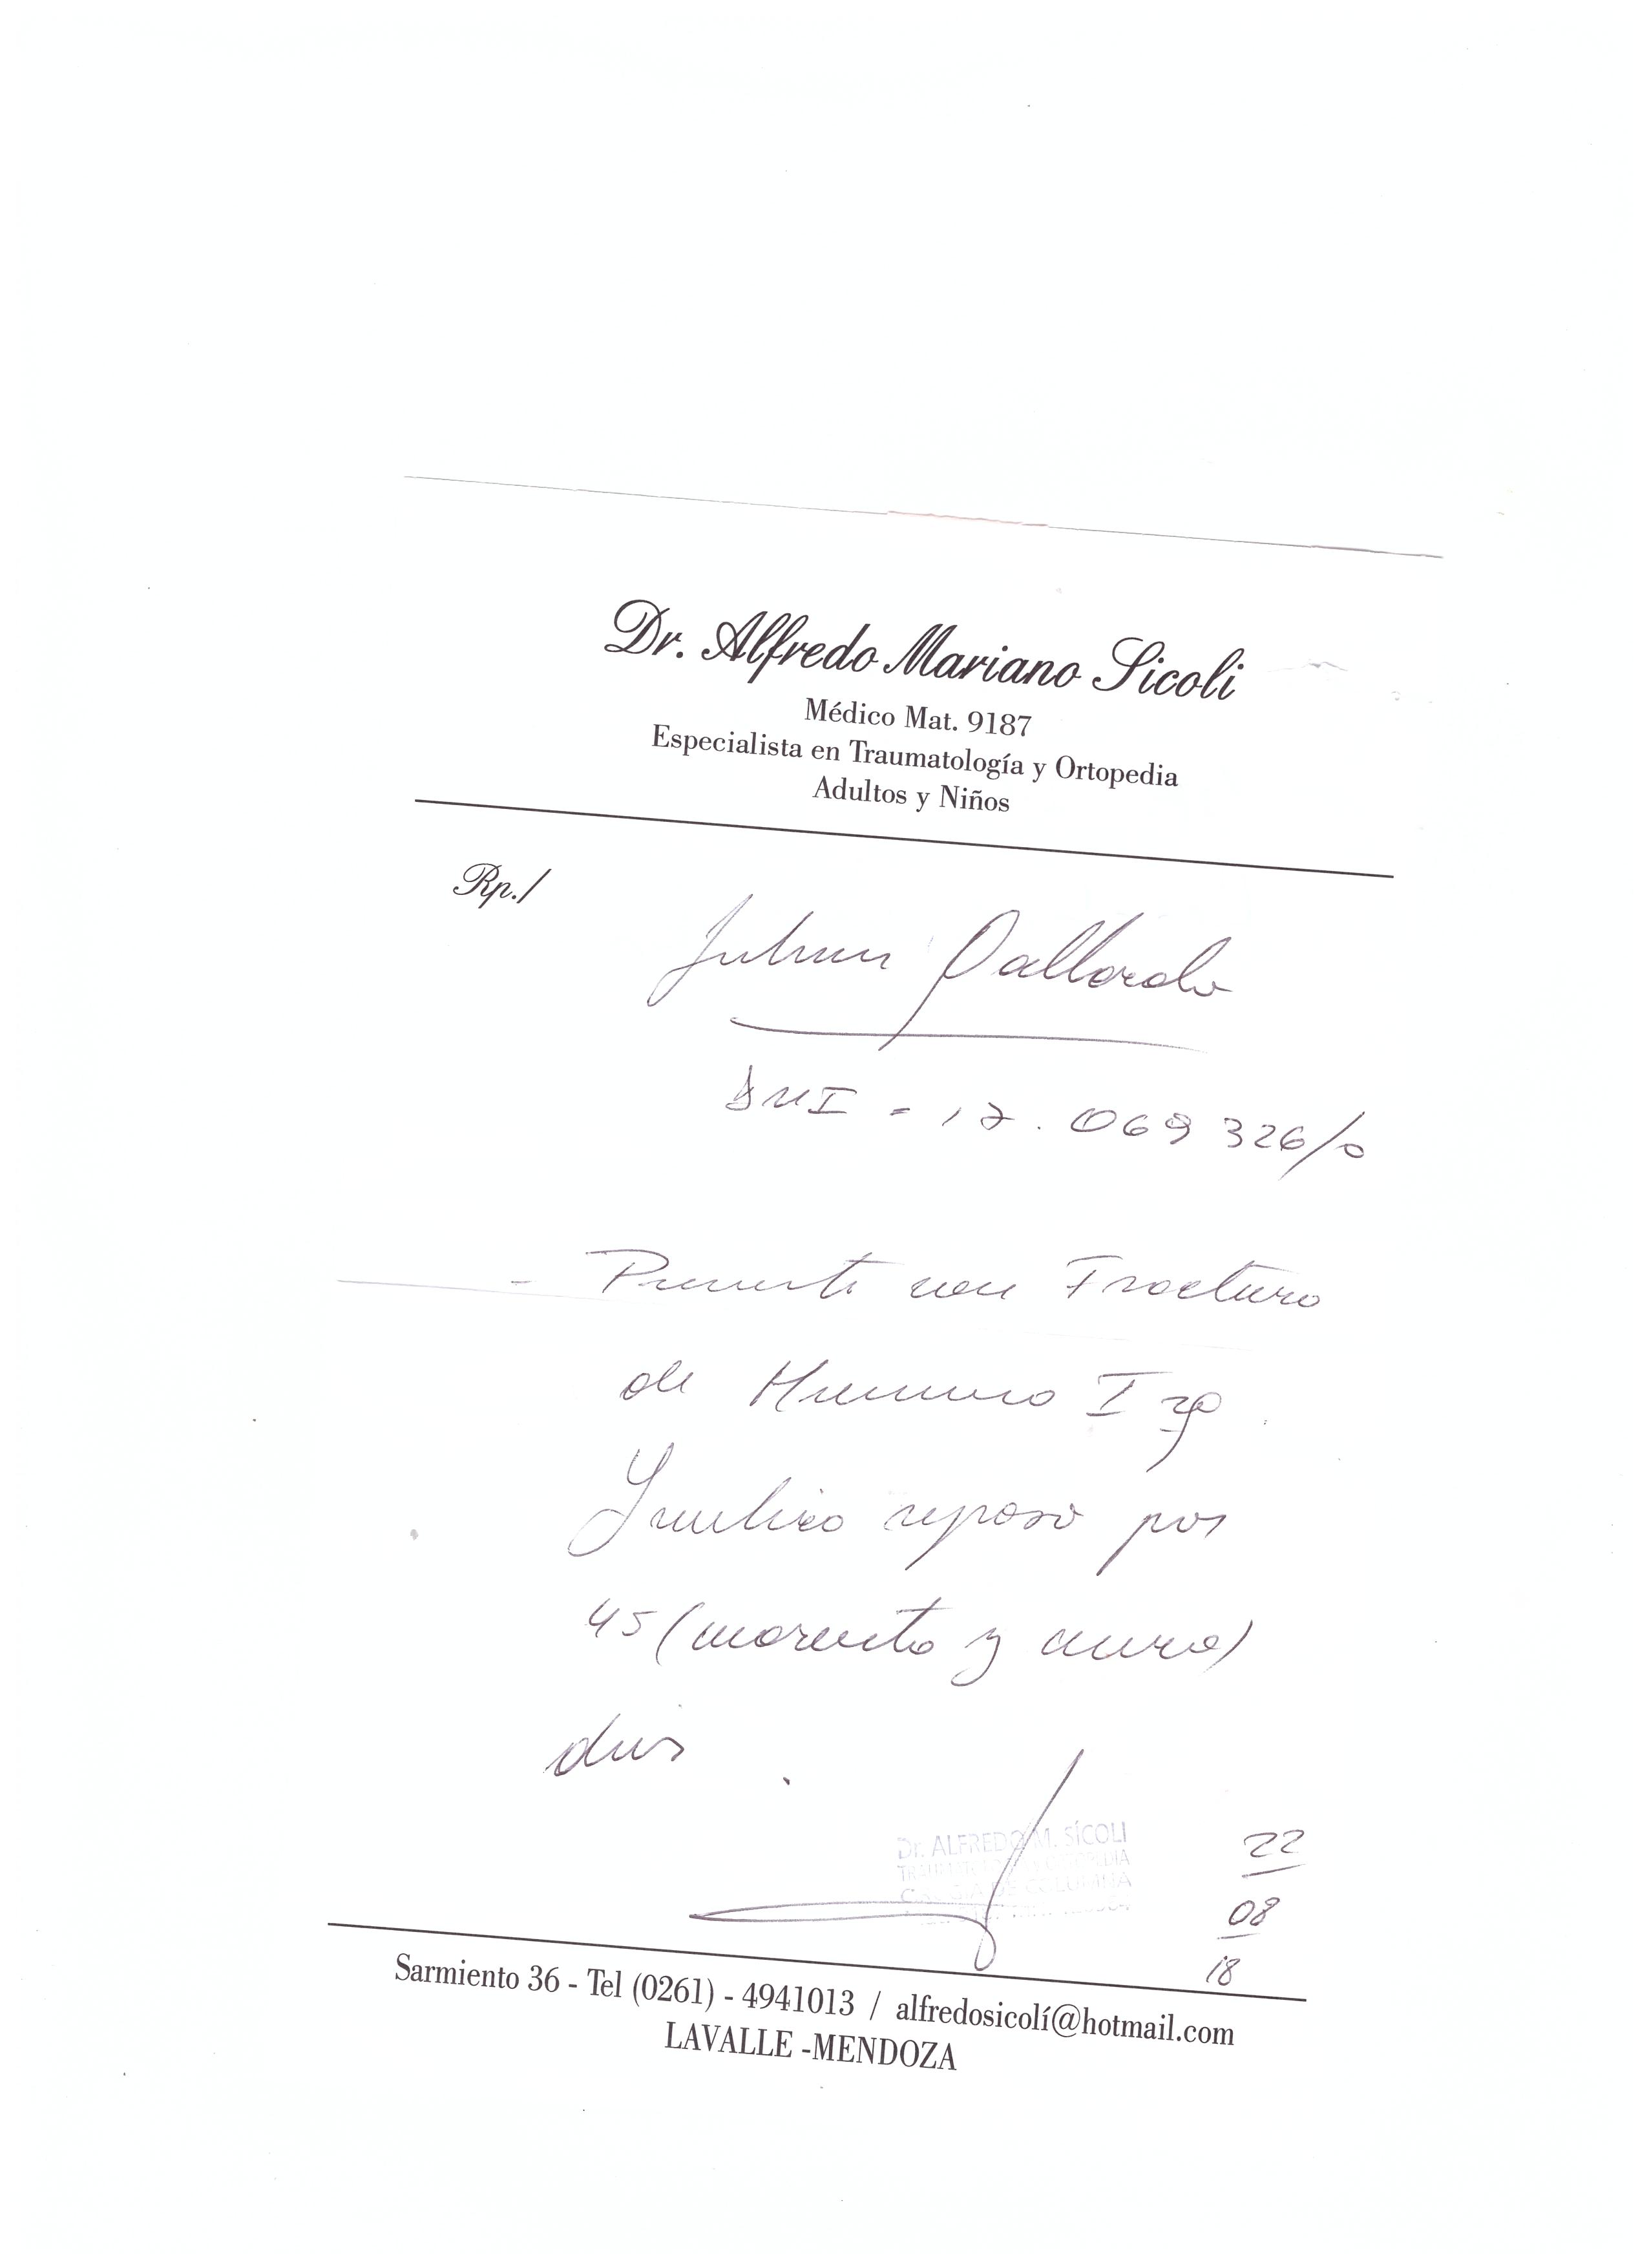 Dr. Alfredo Mariano Sicoli
Médico Mat. 9187
Especialista en Traumatología y Ortopedia
Adultos y Niños
Rp./
Julian Gallardo
DNI - 17.069 326/0
- Paciente con Fractura
de Humero Izq.
Indico reposo por
45 (cuarenta y cinco)
dias
Dr. ALFREDO M. SÍCOLI
TRAUMATOLOGIA Y ORTOPEDIA
CIRUGIA DE COLUMNA
22
08
18
Sarmiento 36 - Tel (0261) - 4941013 / alfredosicolí@hotmail.com
LAVALLE -MENDOZA